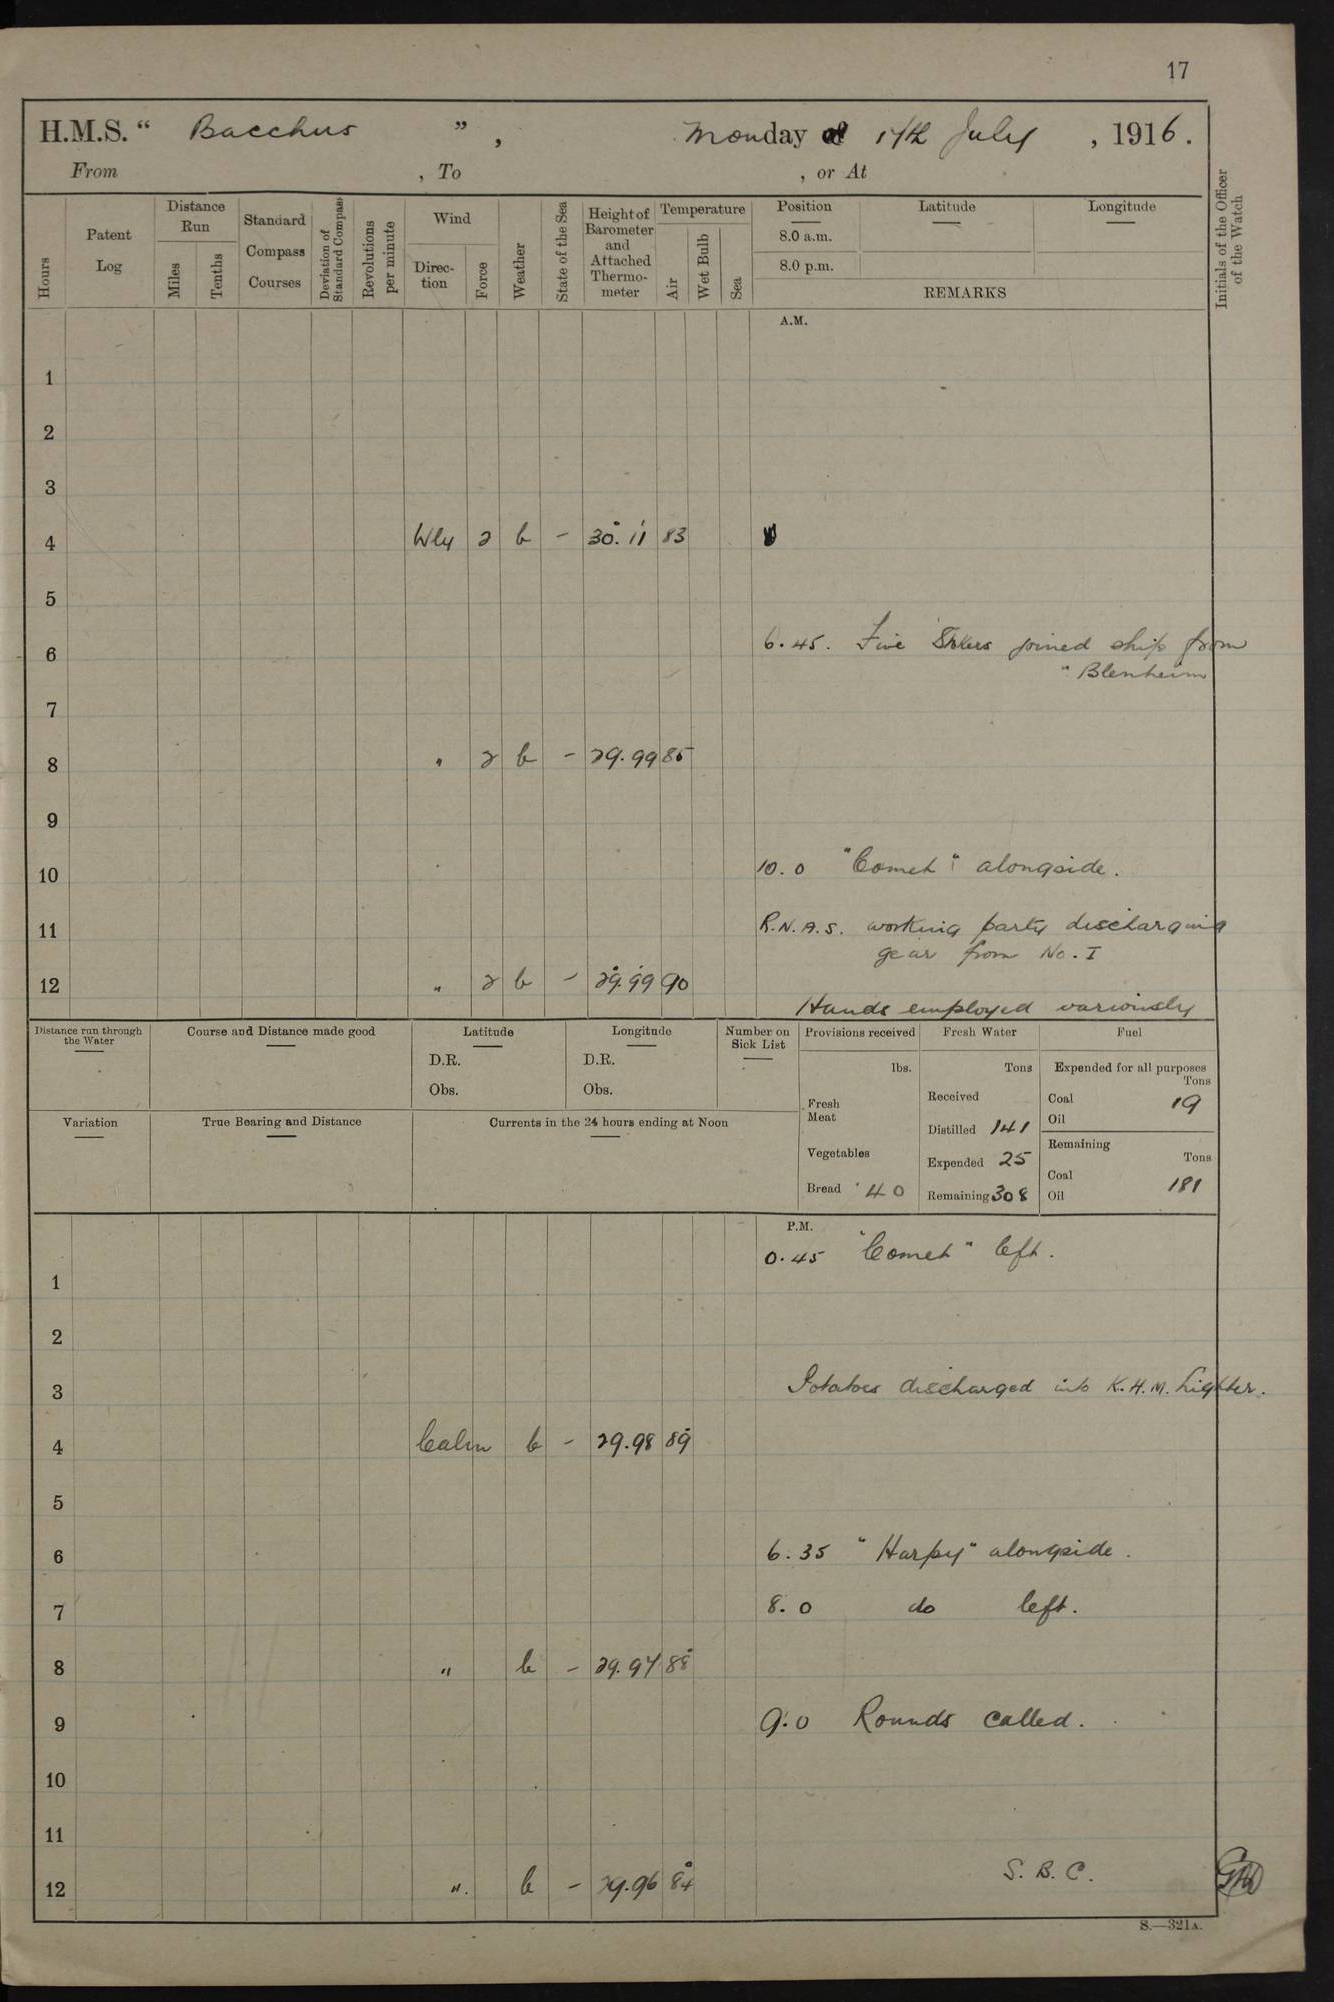 17
H.M.S. “ Bacchus ” , Monday 17th July , 1916.
From , To , or At
Hours
Patent Log
Distance Run
Miles
Tenths
Standard Compass Courses
Deviation of Standard Compass
Revolutions per minute
Wind
Direction
Force
Weather
State of the Sea
Height of Barometer and Attached Thermo-meter
Temperature
Air
Wet Bulb
Sea
Position Latitude Longitude
8.0 a.m.
8.0 p.m.
REMARKS
Initials of the Officer of the Watch
A.M.
1
2
3
4 Wly 2 b - 30.11 83
5
6 6.45. Five Stokers joined ship from
" Blenheim
7
8 " 2 b - 29.99 85
9
10 10.0 "Comet" alongside.
11 R.N.A.S. working party discharging
gear from No. I
12 " 2 b - 29.99 90
Hands employed variously
Distance run through the Water
Course and Distance made good
Latitude
D.R.
Obs.
Longitude
D.R.
Obs.
Number on Sick List
Provisions received
lbs.
Fresh Meat
Vegetables
Bread 40
Fresh Water
Tons
Received
Distilled 141
Expended 25
Remaining 308
Fuel
Expended for all purposes
Tons
Coal 19
Oil
Remaining
Tons
Coal 181
Oil
Variation
True Bearing and Distance
Currents in the 24 hours ending at Noon
P.M.
0.45 "Comet" left.
1
2
3 Potatoes discharged into K.H.M. Lighter.
4 Calm b - 29.98 89
5
6 6.35 "Harpy" alongside.
7 8.0 do left.
8 " b - 29.97 88
9 9.0 Rounds called.
10
11
12 " b - 29.96 84 S.B.C.
S.—321A.